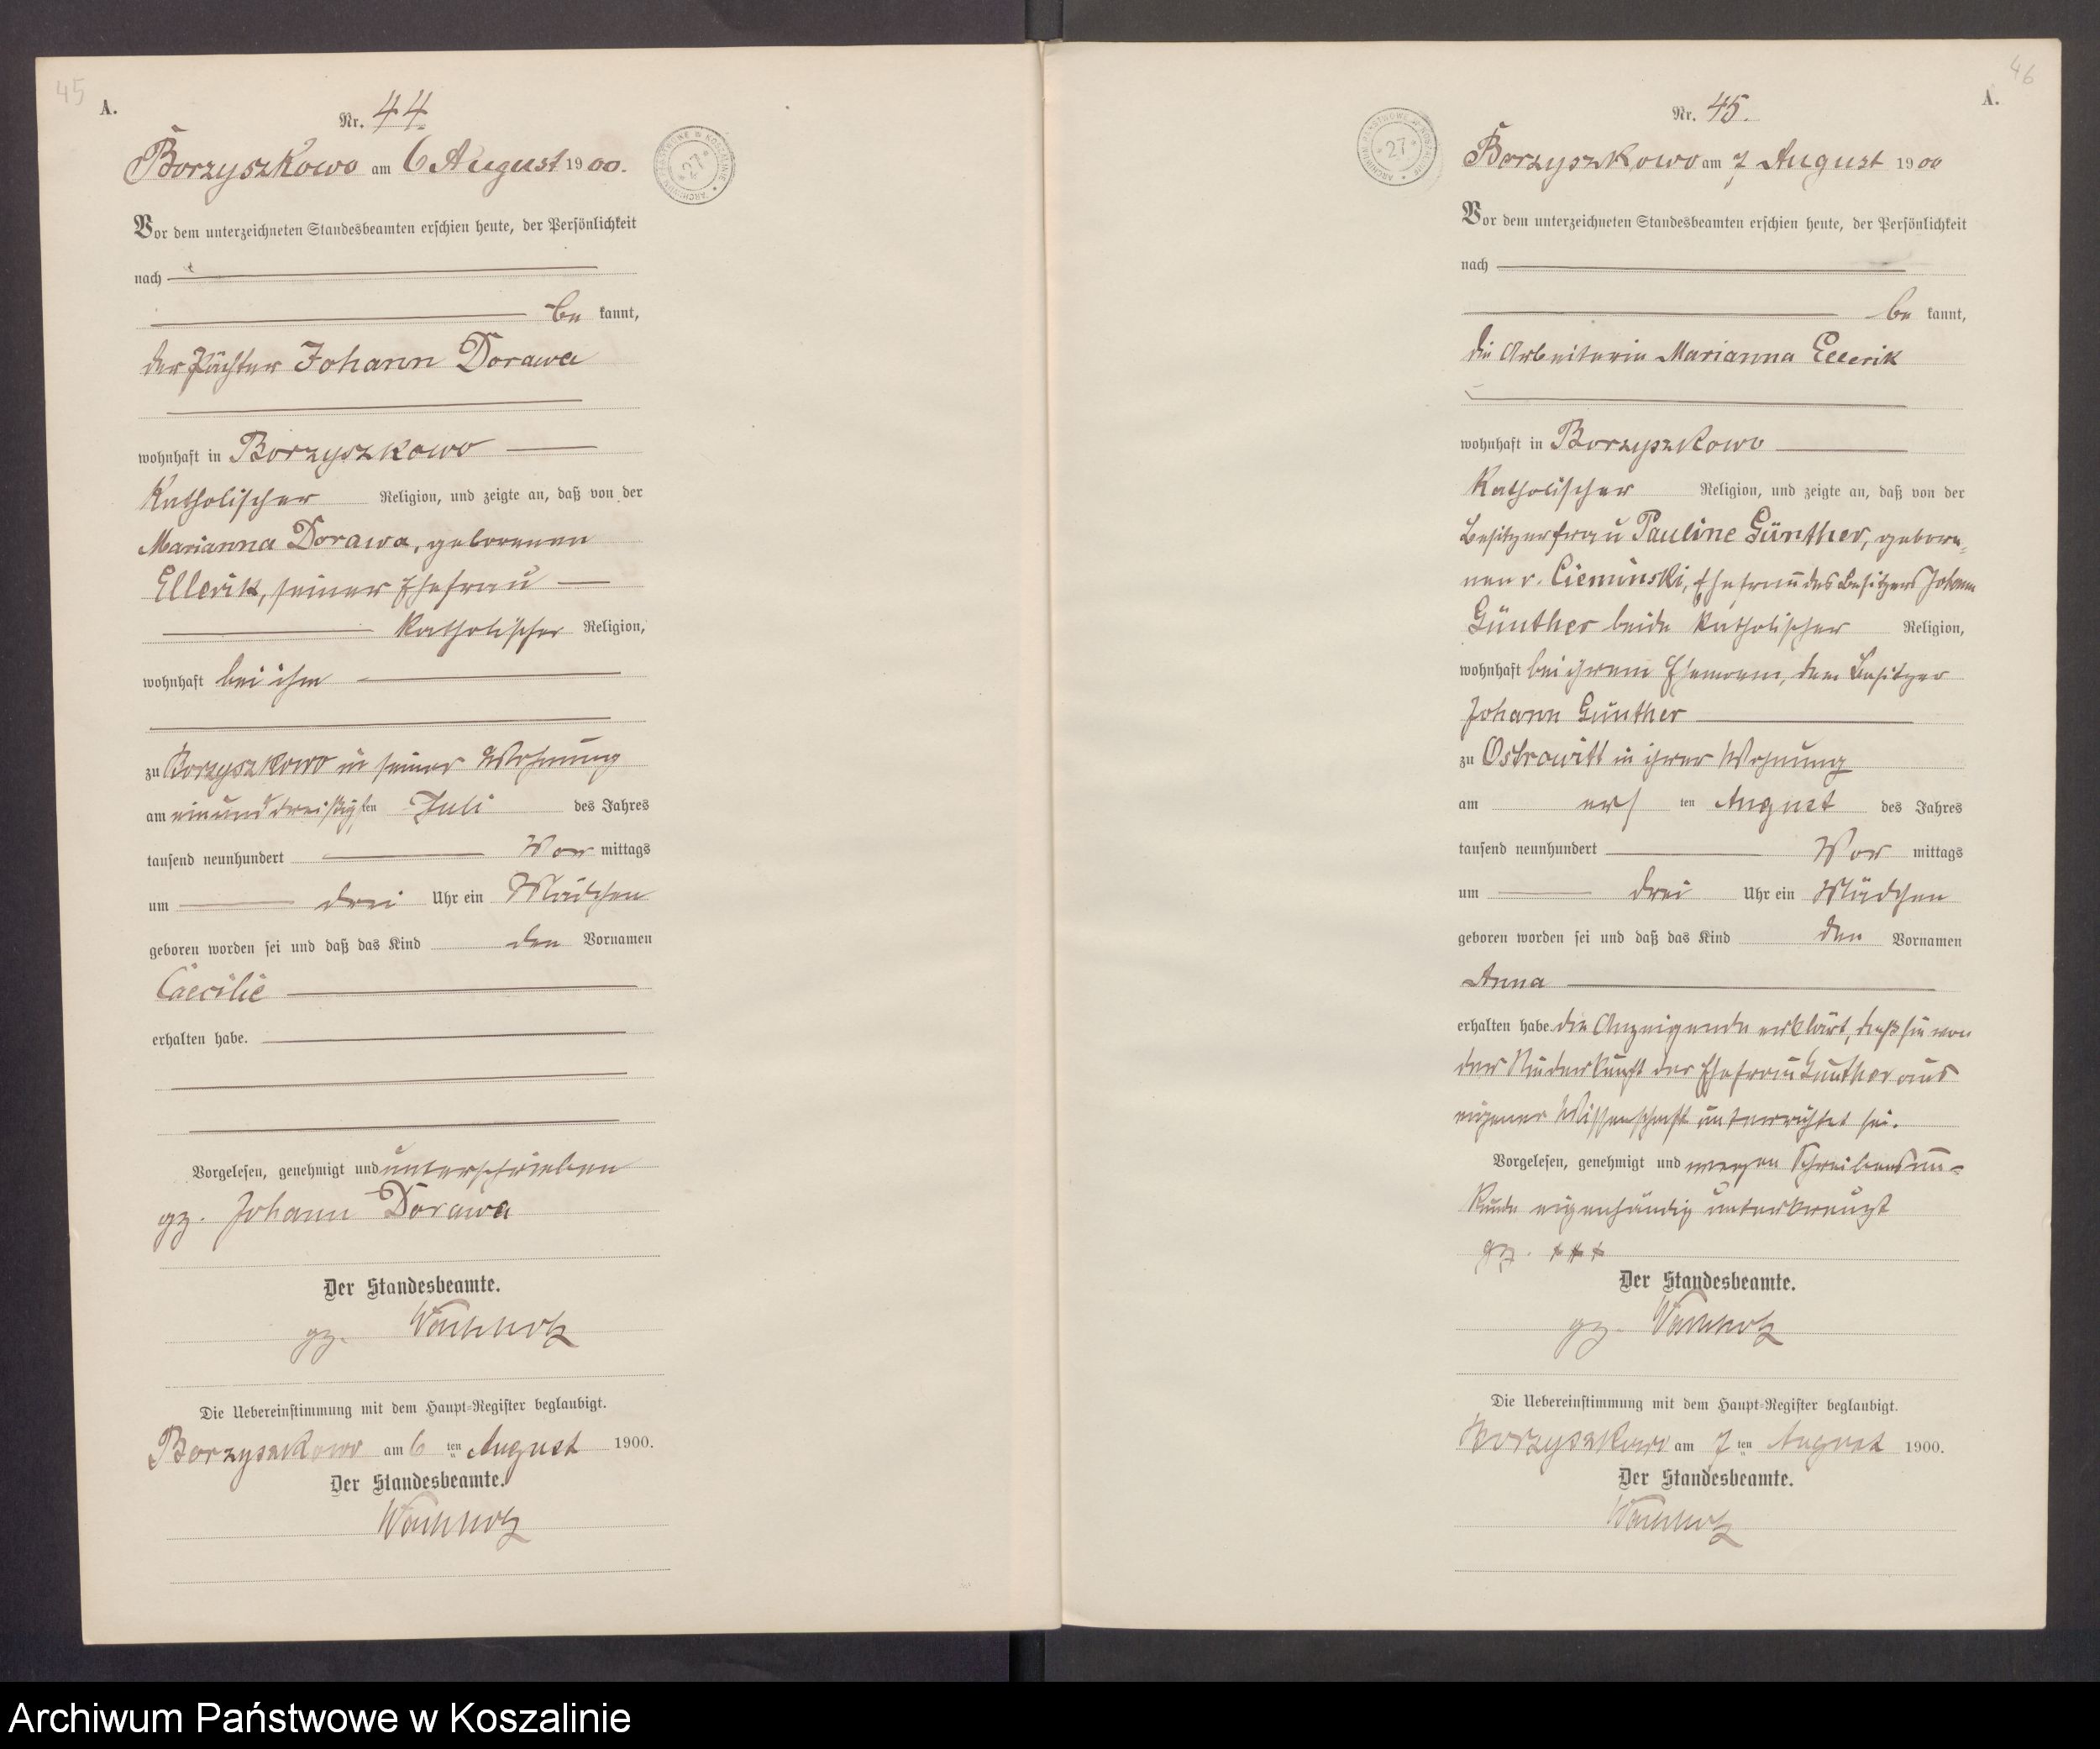 45
A.
Nr. 44
Borzyszkowo am 6 August 1900.
ARCHIWUM PAŃSTWOWE W KOSZALINIE * 27 *
Vor dem unterzeichneten Standesbeamten erschien heute, der Persönlichkeit
nach
be kannt,
der Pächter Johann Dorawa
wohnhaft in Borzyszkowo
katholischer Religion, und zeigte an, daß von der
Marianna Dorawa, geborenen
Ellerik, seiner Ehefrau
katholischer Religion,
wohnhaft bei ihm
zu Borzyszkowo in seiner Wohnung
am einunddreißigsten Juli des Jahres
tausend neunhundert Vor mittags
um drei Uhr ein Mädchen
geboren worden sei und daß das Kind den Vornamen
Caecilie
erhalten habe.
Vorgelesen, genehmigt und unterschrieben
gz. Johann Dorawa
Der Standesbeamte.
gz.
Die Uebereinstimmung mit dem Haupt-Register beglaubigt.
Borzyszkowo am 6 ten August 1900.
Der Standesbeamte.
46
A.
Nr. 45.
ARCHIWUM PAŃSTWOWE W KOSZALINIE * 27 *
Borzyszkowo am 7 August 1900
Vor dem unterzeichneten Standesbeamten erschien heute, der Persönlichkeit
nach
be kannt,
die Arbeiterin Marianna Ellerik
wohnhaft in Borzyszkowo
katholischer Religion, und zeigte an, daß von der
Besitzerfrau Pauline Günther, gebore-
nen v. Cieminski, Ehefrau des Besitzers Johann
Günther beide katholischer Religion,
wohnhaft bei ihrem Ehemann, dem Besitzer
Johann Günther
zu Ostrowitt in ihrer Wohnung
am ers ten August des Jahres
tausend neunhundert Vor mittags
um drei Uhr ein Mädchen
geboren worden sei und daß das Kind den Vornamen
Anna
erhalten habe. die Anzeigende erklärt, daß sie von
der Niederkunft der Ehefrau Günther aus
eigener Wissenschaft unterrichtet sei.
Vorgelesen, genehmigt und wegen Schreibensun-
kunde eigenhändig unterkreuzt
gz. +++
Der Standesbeamte.
gz.
Die Uebereinstimmung mit dem Haupt-Register beglaubigt.
Borzyszkowo am 7 ten August 1900.
Der Standesbeamte.
Archiwum Państwowe w Koszalinie